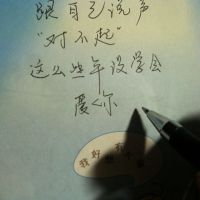 跟自己说声
“对不起”
这么些年没学会
爱你
我好